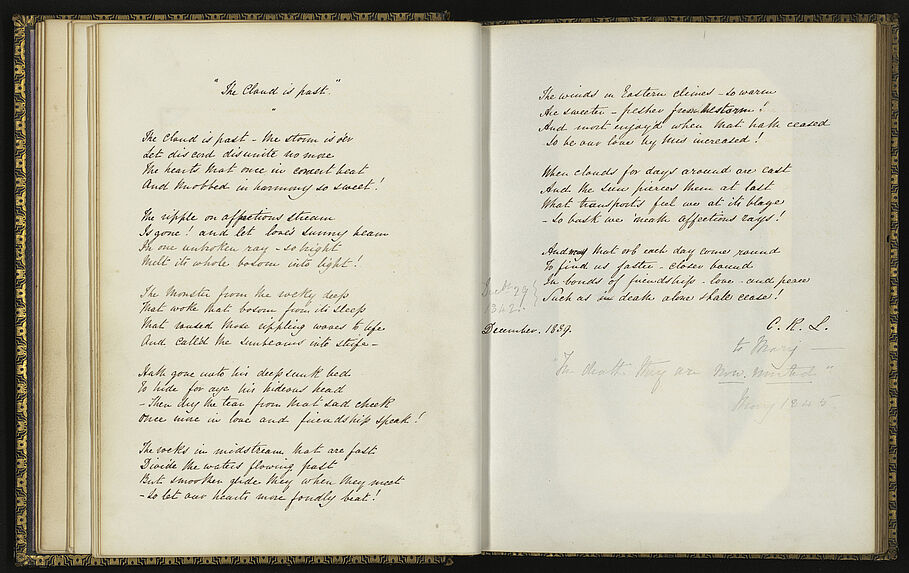 "The Cloud is past."
The cloud is past – the storm is o'er
Let discord disunite no more
The hearts that once in concert beat
And throbbed in harmony so sweet!
The ripple on affections stream
Is gone! and let love's sunny beam
In one unbroken ray – so bright
Melt its whole bosom into light!
The Monster from the rocky deep
That woke that bosom from its sleep
That roused those rippling waves to life
And call'd the sunbeams into strife –
Hath gone unto his deep sunk bed
To hide for aye his hideous head
– Then dry the tear from that sad cheek
Once more in love and friendship speak!
The rocks in midstream that are fast
Divide the waters flowing past
But smoother glide they when they meet
– So let our hearts more fondly beat!
The winds in Eastern climes – so warm
Are sweeter – fresher from the storm!
And most enjoy'd when that hath ceased
So be our love by this increased!
When clouds for days around are cast
And the Sun pierces them at last
What transports feel we at its blaze
– So bask we 'neath affections rays!
And may that orb each day come round
To find us faster – closer bound
In bonds of friendship – love – and peace
Such as in death alone shall cease!
December. 1839.
C. R. L.
to Mary –
"In death they are now united"
Mary 1845